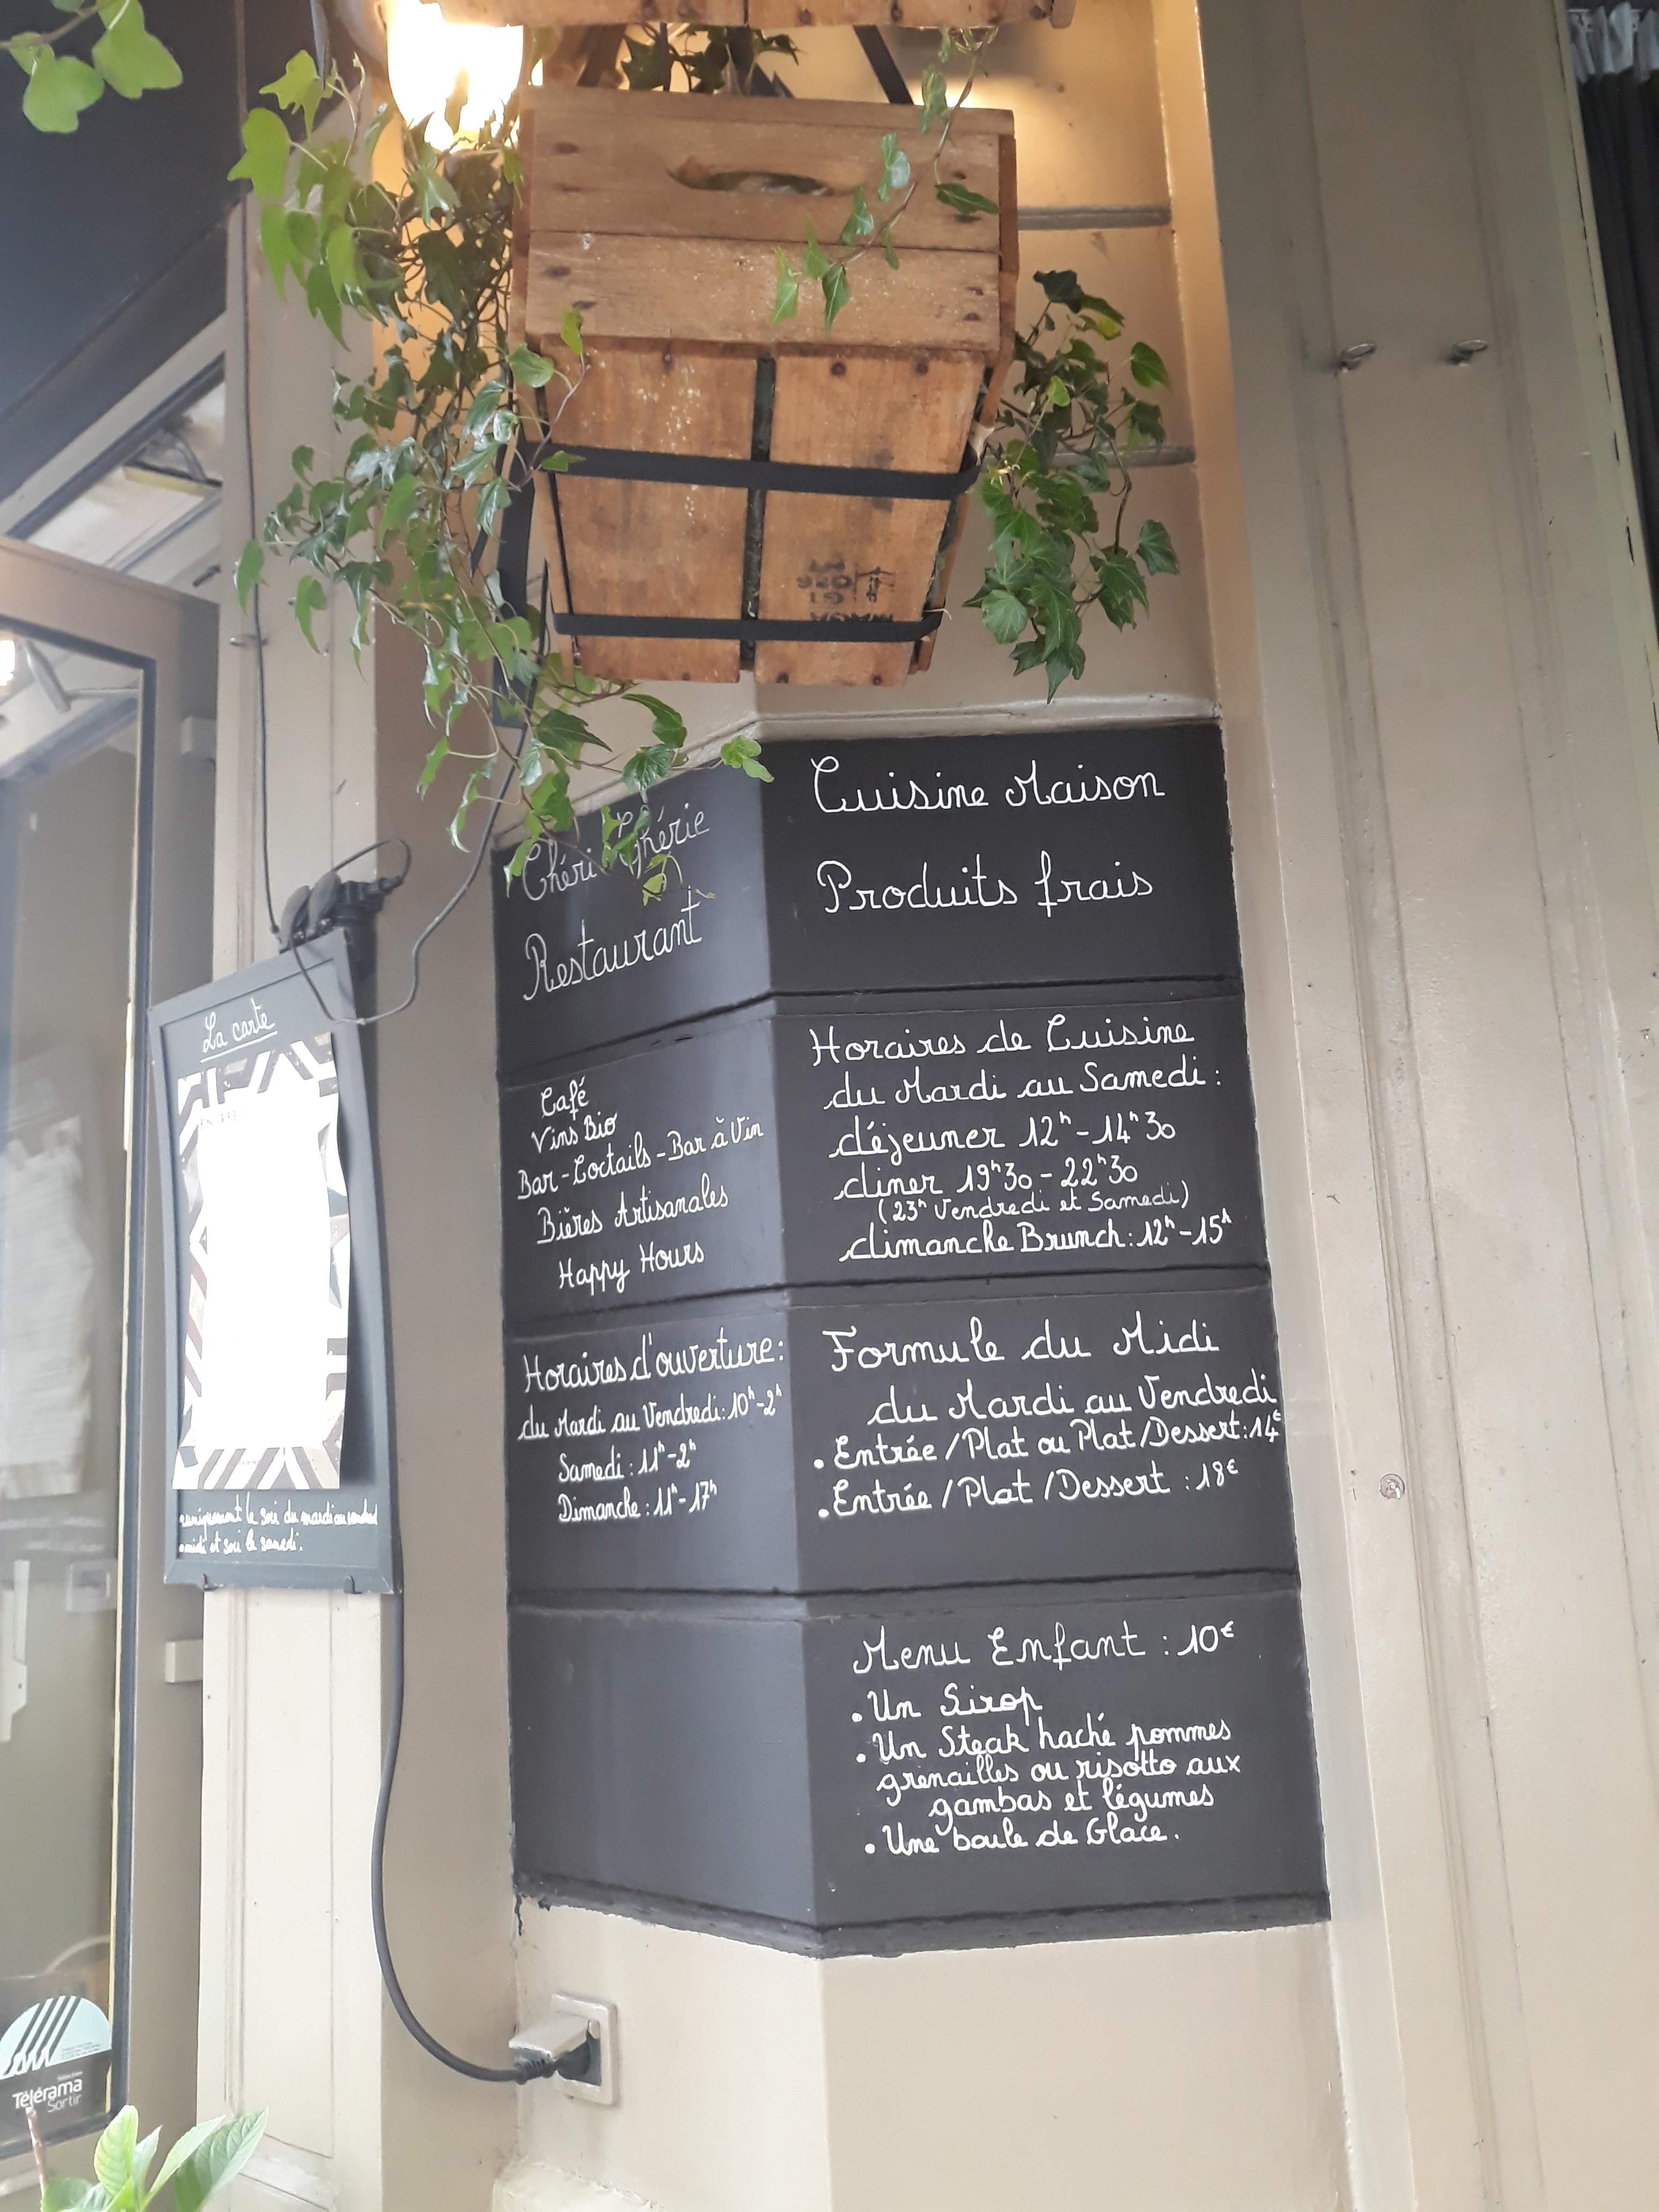 Chéri Chérie
Restaurant
Café
Vins Bio
Bar-Coctails-Bar à Vin
Bières Artisanales
Happy Hours
Horaires d'ouverture:
du Mardi au Vendredi: 10h-2h
Samedi: 11h-2h
Dimanche: 11h-17h
Cuisine Maison
Produits frais
Horaires de Cuisine
du Mardi au Samedi:
déjeuner 12h-14h30
diner 19h30-22h30
(23h Vendredi et Samedi)
dimanche Brunch: 12h-15h
Formule du Midi
du Mardi au Vendredi
• Entrée/Plat ou Plat/Dessert: 14€
• Entrée/Plat/Dessert: 18€
Menu Enfant: 10€
• Un Sirop
• Un Steak haché pommes
grenailles ou risotto aux
gambas et légumes
• Une boule de Glace.
La carte
uniquement le soir du mardi au vendredi
midi et soir le samedi.
Télérama
Sortir